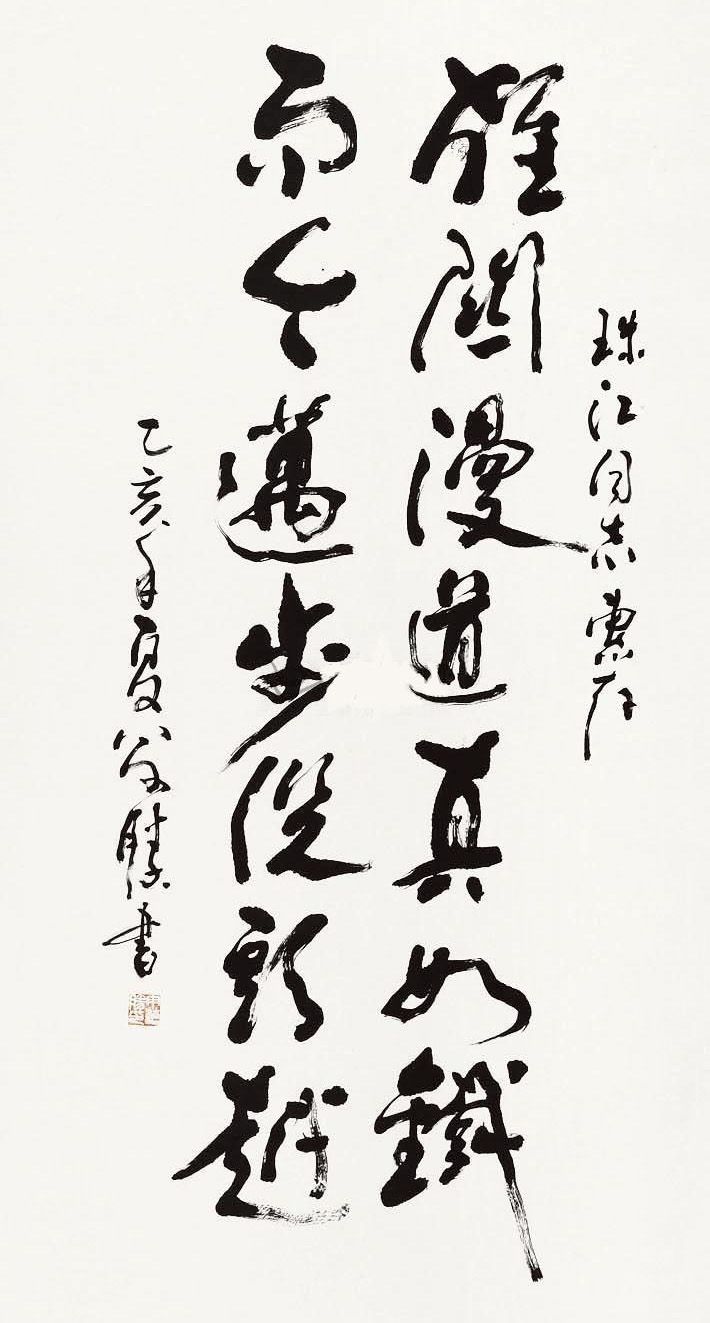 珠江同志惠存
雄關漫道真如鐵
而今邁步從頭越
乙亥年夏書